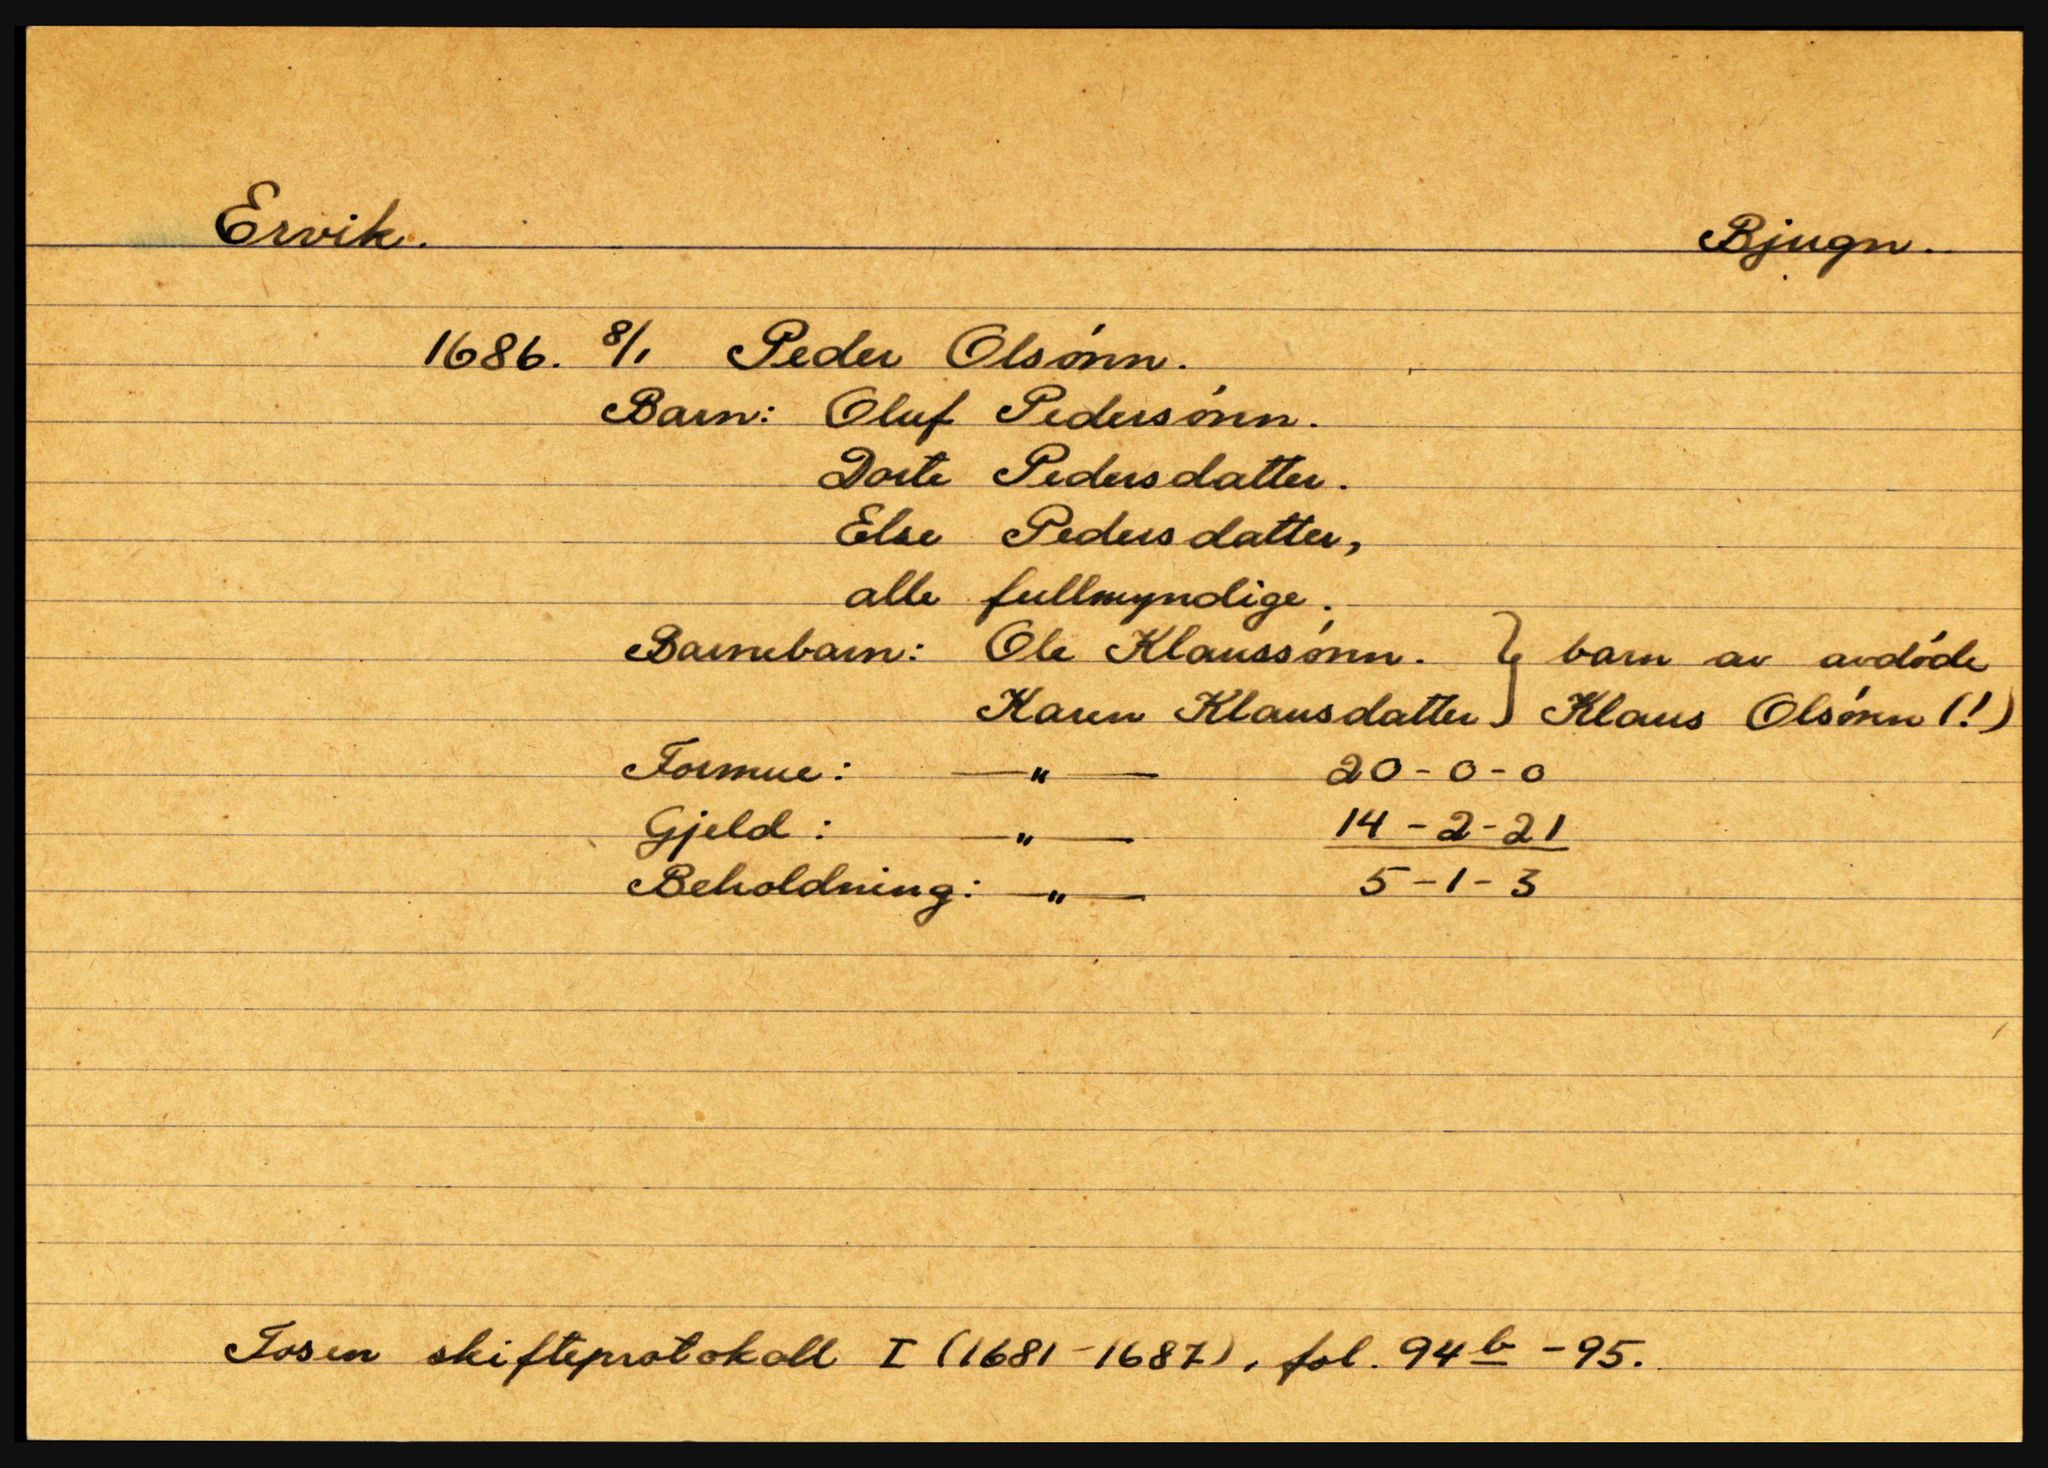 Ervik. Bjugn.
1686. 8/1 Peder Olsónn.
Barn: Oluf Pedersónn.
Dorte Pedersdatter.
Else Pedersdatter,
alle fullmyndige.
Barnebarn: Ole Klaussónn. } barn av avdóde
Karen Klausdatter } Klaus Olsónn (!)
Formue: —"— 20-0-0
Gjeld: —"— 14-2-21
Beholdning: —"— 5-1-3
Fosen skifteprotokoll I (1681-1687), fol. 94b-95.